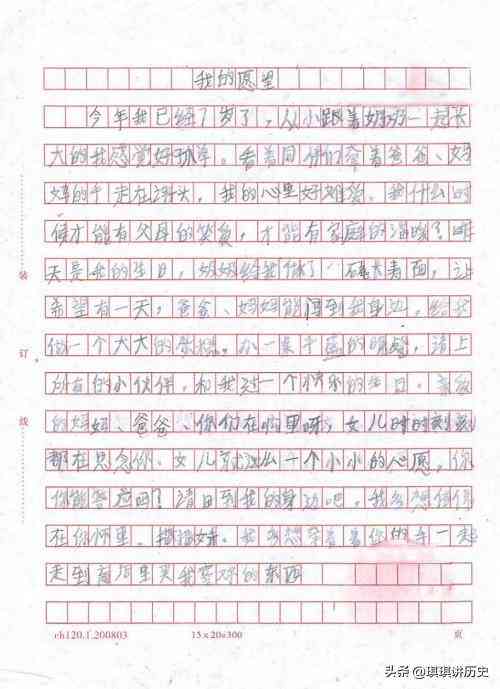 我的愿望
今年我已经7岁了，从小跟着妈妈一起长
大的我感觉好孤单。看着同伴们牵着爸爸、妈
妈的手走在街头，我的心里好难受。我什么时
候才能有父母的笑，才能有家庭的温暖？昨
天是我的生日，妈妈给我做了一碗长寿面，
希望有一天，爸爸、妈妈能回到我身边，给我
做一个大大的蛋糕，一起的，请上
所有的小伙伴，和我过一个快乐的生日。亲爱
的妈妈、爸爸、你们在哪里呀，女儿时时刻刻
都在思念你、女儿就这么一个小小的心愿，你
你能答应吗？请回到我的身边吧，我多想偎依
在你怀里，我多想牵着你的手一起
走到商场里买我喜欢的东西
装
订
线
rh120.1.200803
15x20=300
页
头条 @琪琪讲历史